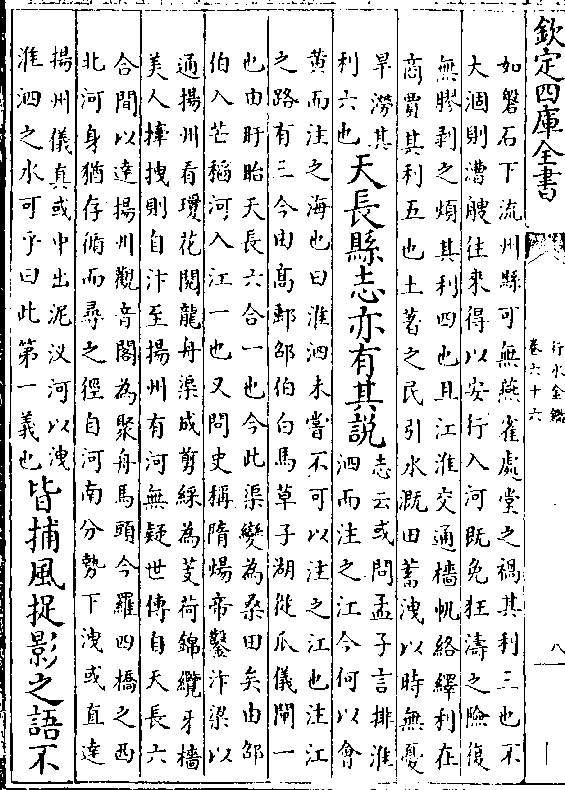 欽定四庫全書
行水金鑑
卷六十六
八
如磐石下流州縣可無燕雀處堂之禍其利三也不
大涸則漕艘往來得以安行入河既免狂濤之險復
無膠剥之煩其利四也且江淮交通檣帆絡繹利在
商賈其利五也土著之民引水溉田蓄洩以時無憂
旱澇其
利六也
天長縣志亦有其說
志云或問孟子言排淮
泗而注之江今何以會
黄而注之海也曰淮泗未嘗不可以注之江也注江
之路有三今由高郵邵伯白馬草子湖從瓜儀閘一
也由盱眙天長六合一也今此渠變為桑田矣由邵
伯入芒稻河入江一也又問史稱隋煬帝鑿汴梁以
通揚州看瓊花閱龍舟渠成剪綵為芰荷錦纜牙檣
美人拽則自汴至揚州有河無疑世傳自天長六
合間以達揚州觀音閣為聚舟馬頭今羅四橋之西
北河身猶存循而尋之徑自河南分勢下洩或直達
揚州儀真或中出泥汊河以洩
淮泗之水可乎曰此第一義也
皆捕風捉影之語不